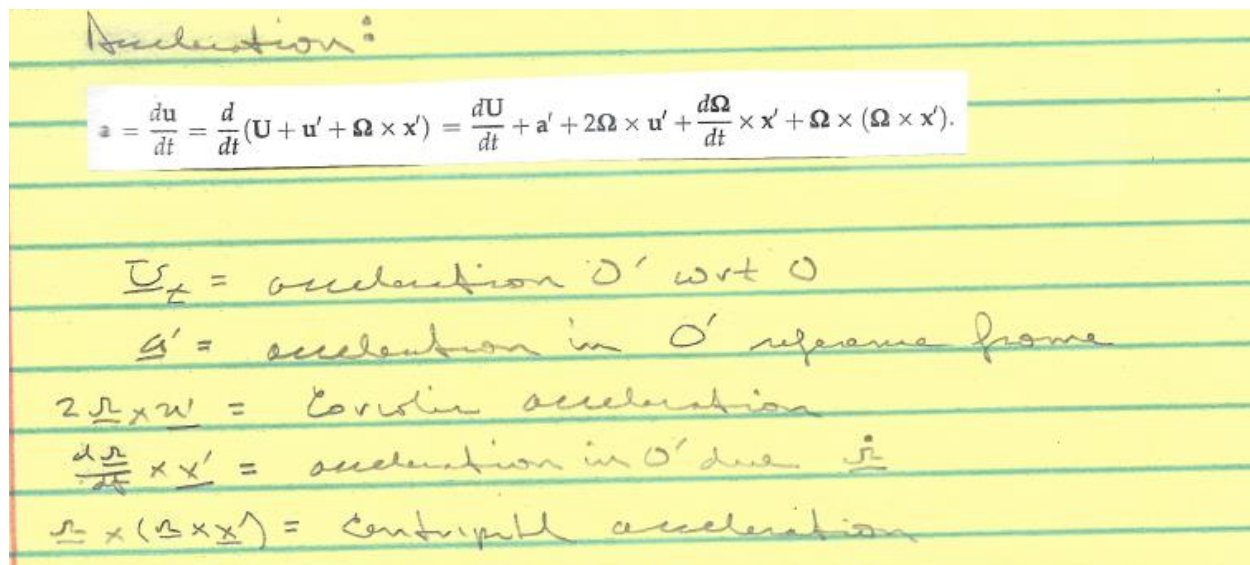 Acceleration:
a = du/dt = d/dt (U + u′ + Ω × x′) = dU/dt + a′ + 2Ω × u′ + dΩ/dt × x′ + Ω × (Ω × x′).
U̲t = acceleration O′ wrt O
a̲′ = acceleration in O′ reference frame
2Ω̲ × u̲′ = Coriolis acceleration
dΩ̲/dt × x̲′ = acceleration in O′ due Ω̲̇
Ω̲ × (Ω̲ × x̲′) = Centripetal acceleration